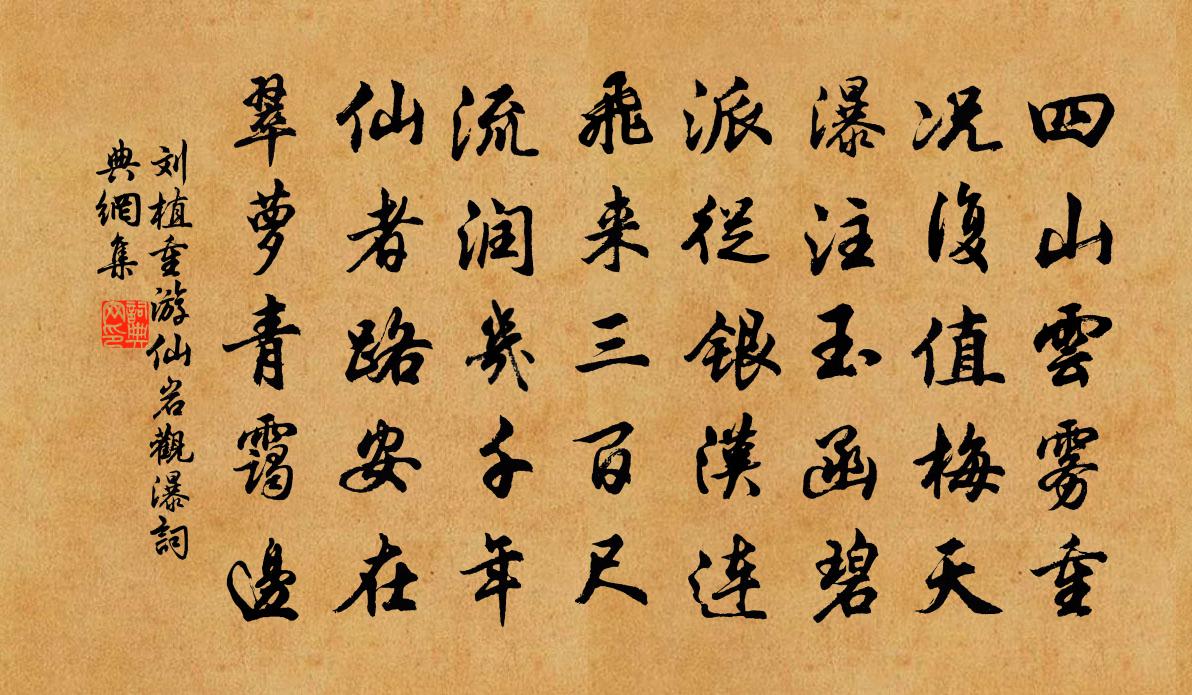 四山雲雾重
况復值梅天
瀑注玉函碧
派從銀漢連
飛来三百尺
流润幾千年
仙者路安在
翠萝青靄邊
刘植重游仙岩觀瀑詞
典網集
詞典
网印